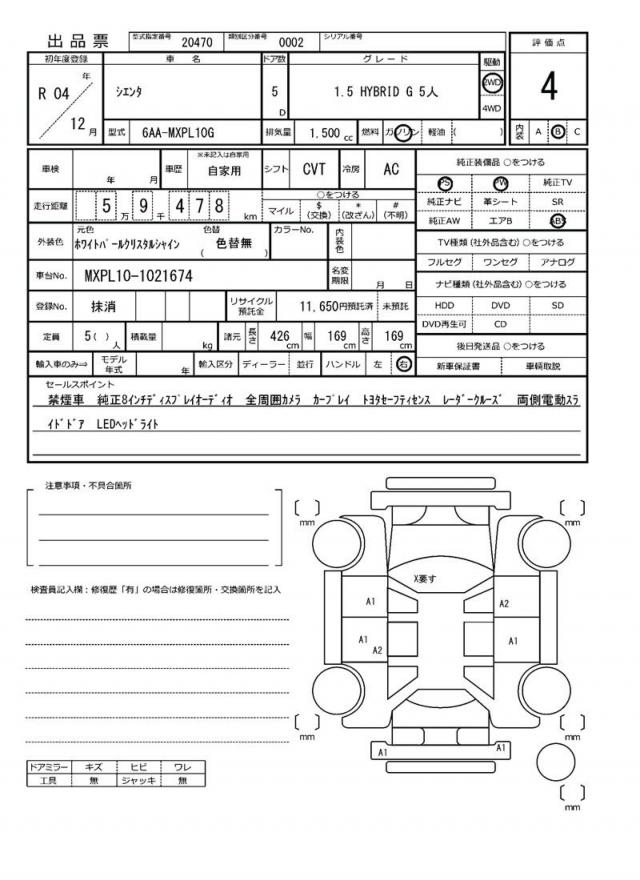 出品票 型式指定番号 20470 類別区分番号 0002 シリアル番号
評価点
4
初年度登録 車名 ドア数 グレード 駆動
R 04 年 12 月
シエンタ 5 D 1.5 HYBRID G 5人 2WD
4WD
型式 6AA-MXPL10G 排気量 1,500 cc 燃料 ガソリン 軽油 ( )
内装 A B C
車検 年 月 車歴 ※未記入は自家用 自家用 シフト CVT 冷房 AC
走行距離 5 万 9 千 4 7 8 km
○をつける
マイル $(交換) *(改ざん) #(不明)
外装色 元色 ホワイトパールクリスタルシャイン 色替 ( 色替無 ) カラーNo. 内装色
車台No. MXPL10-1021674 名変期限 月 日
登録No. 抹消 リサイクル預託金 11,650円預託済 未預託
定員 5( ) 人 積載量 kg 諸元 長さ 426 cm 幅 169 cm 高さ 169 cm
輸入車のみ⇒ モデル年式 年 輸入区分 ディーラー 並行 ハンドル 左 右
純正装備品 ○をつける
PS PW 純正TV
純正ナビ 革シート SR
純正AW エアB ABS
TV種類 (社外品含む) ○をつける
フルセグ ワンセグ アナログ
ナビ種類 (社外品含む) ○をつける
HDD DVD SD
DVD再生可 CD
後日発送品 ○をつける
新車保証書 車輌取説
セールスポイント
禁煙車 純正8インチディスプレイオーディオ 全周囲カメラ カープレイ トヨタセーフティセンス レーダークルーズ 両側電動スラ
イドドア LEDヘッドライト
注意事項・不具合箇所
検査員記入欄：修復歴「有」の場合は修復箇所・交換箇所を記入
ドアミラー キズ ヒビ ワレ
工具 無 ジャッキ 無
[ ] mm
[ ] mm
X要す
A1
A2
A1
A2
A1
[ ] mm
[ ] mm
A1
A1
[ ] mm